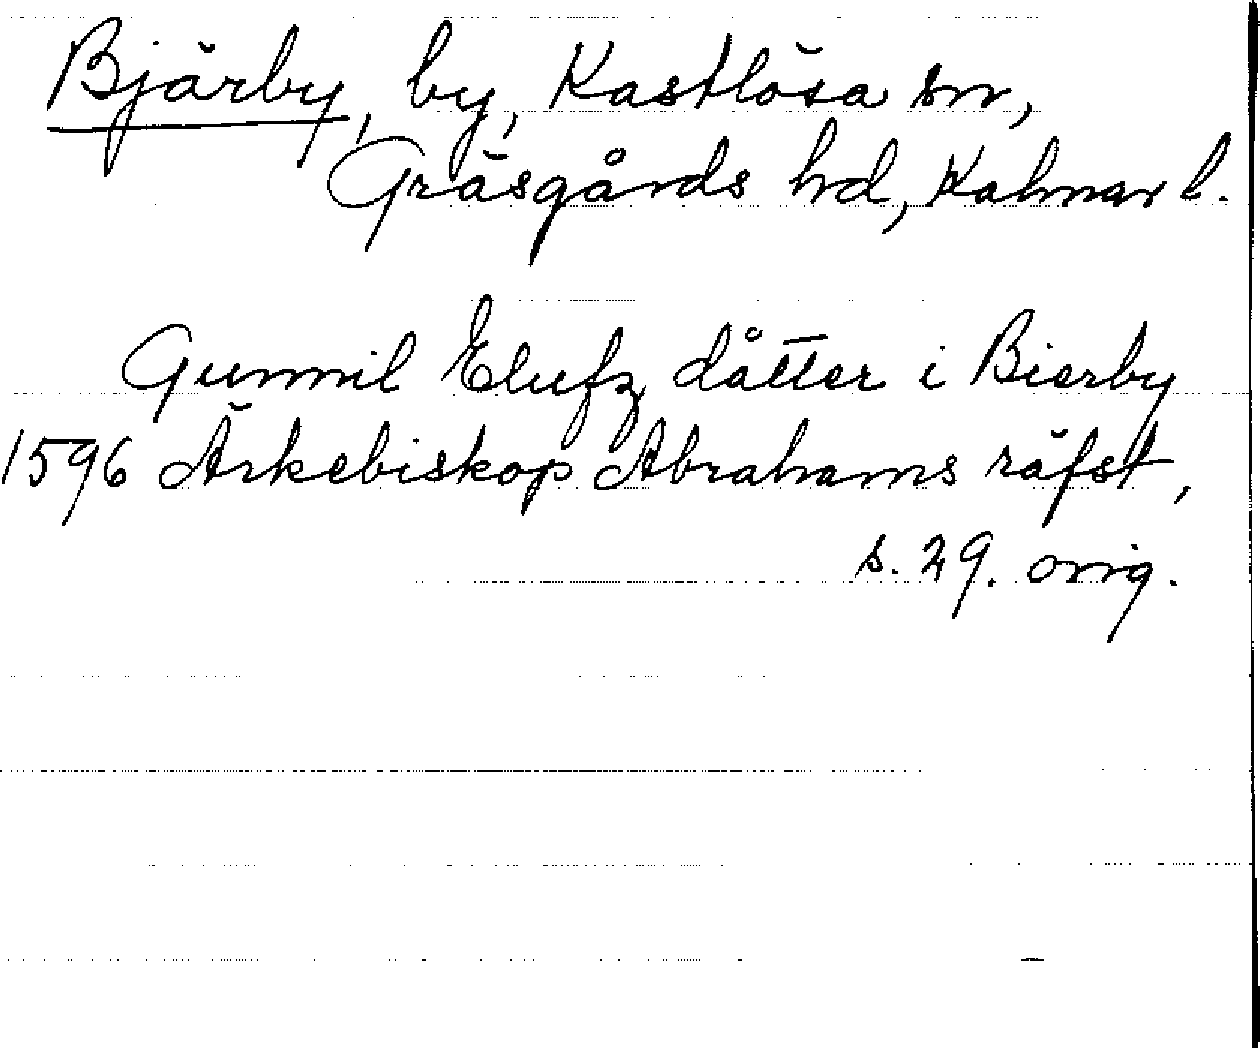 Bjärby, by, Kastlösa sn,
Gräsgårds hd, Kalmar l.
Gunnil Elufz dåtter i Bierby
1596 Ärkebiskop Abrahams räfst,
s. 29. orig.